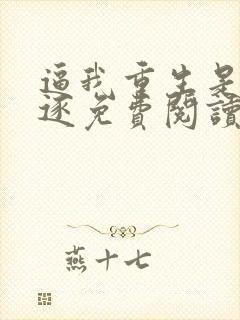 逼我重生是
逐免費閱讀
燕十七